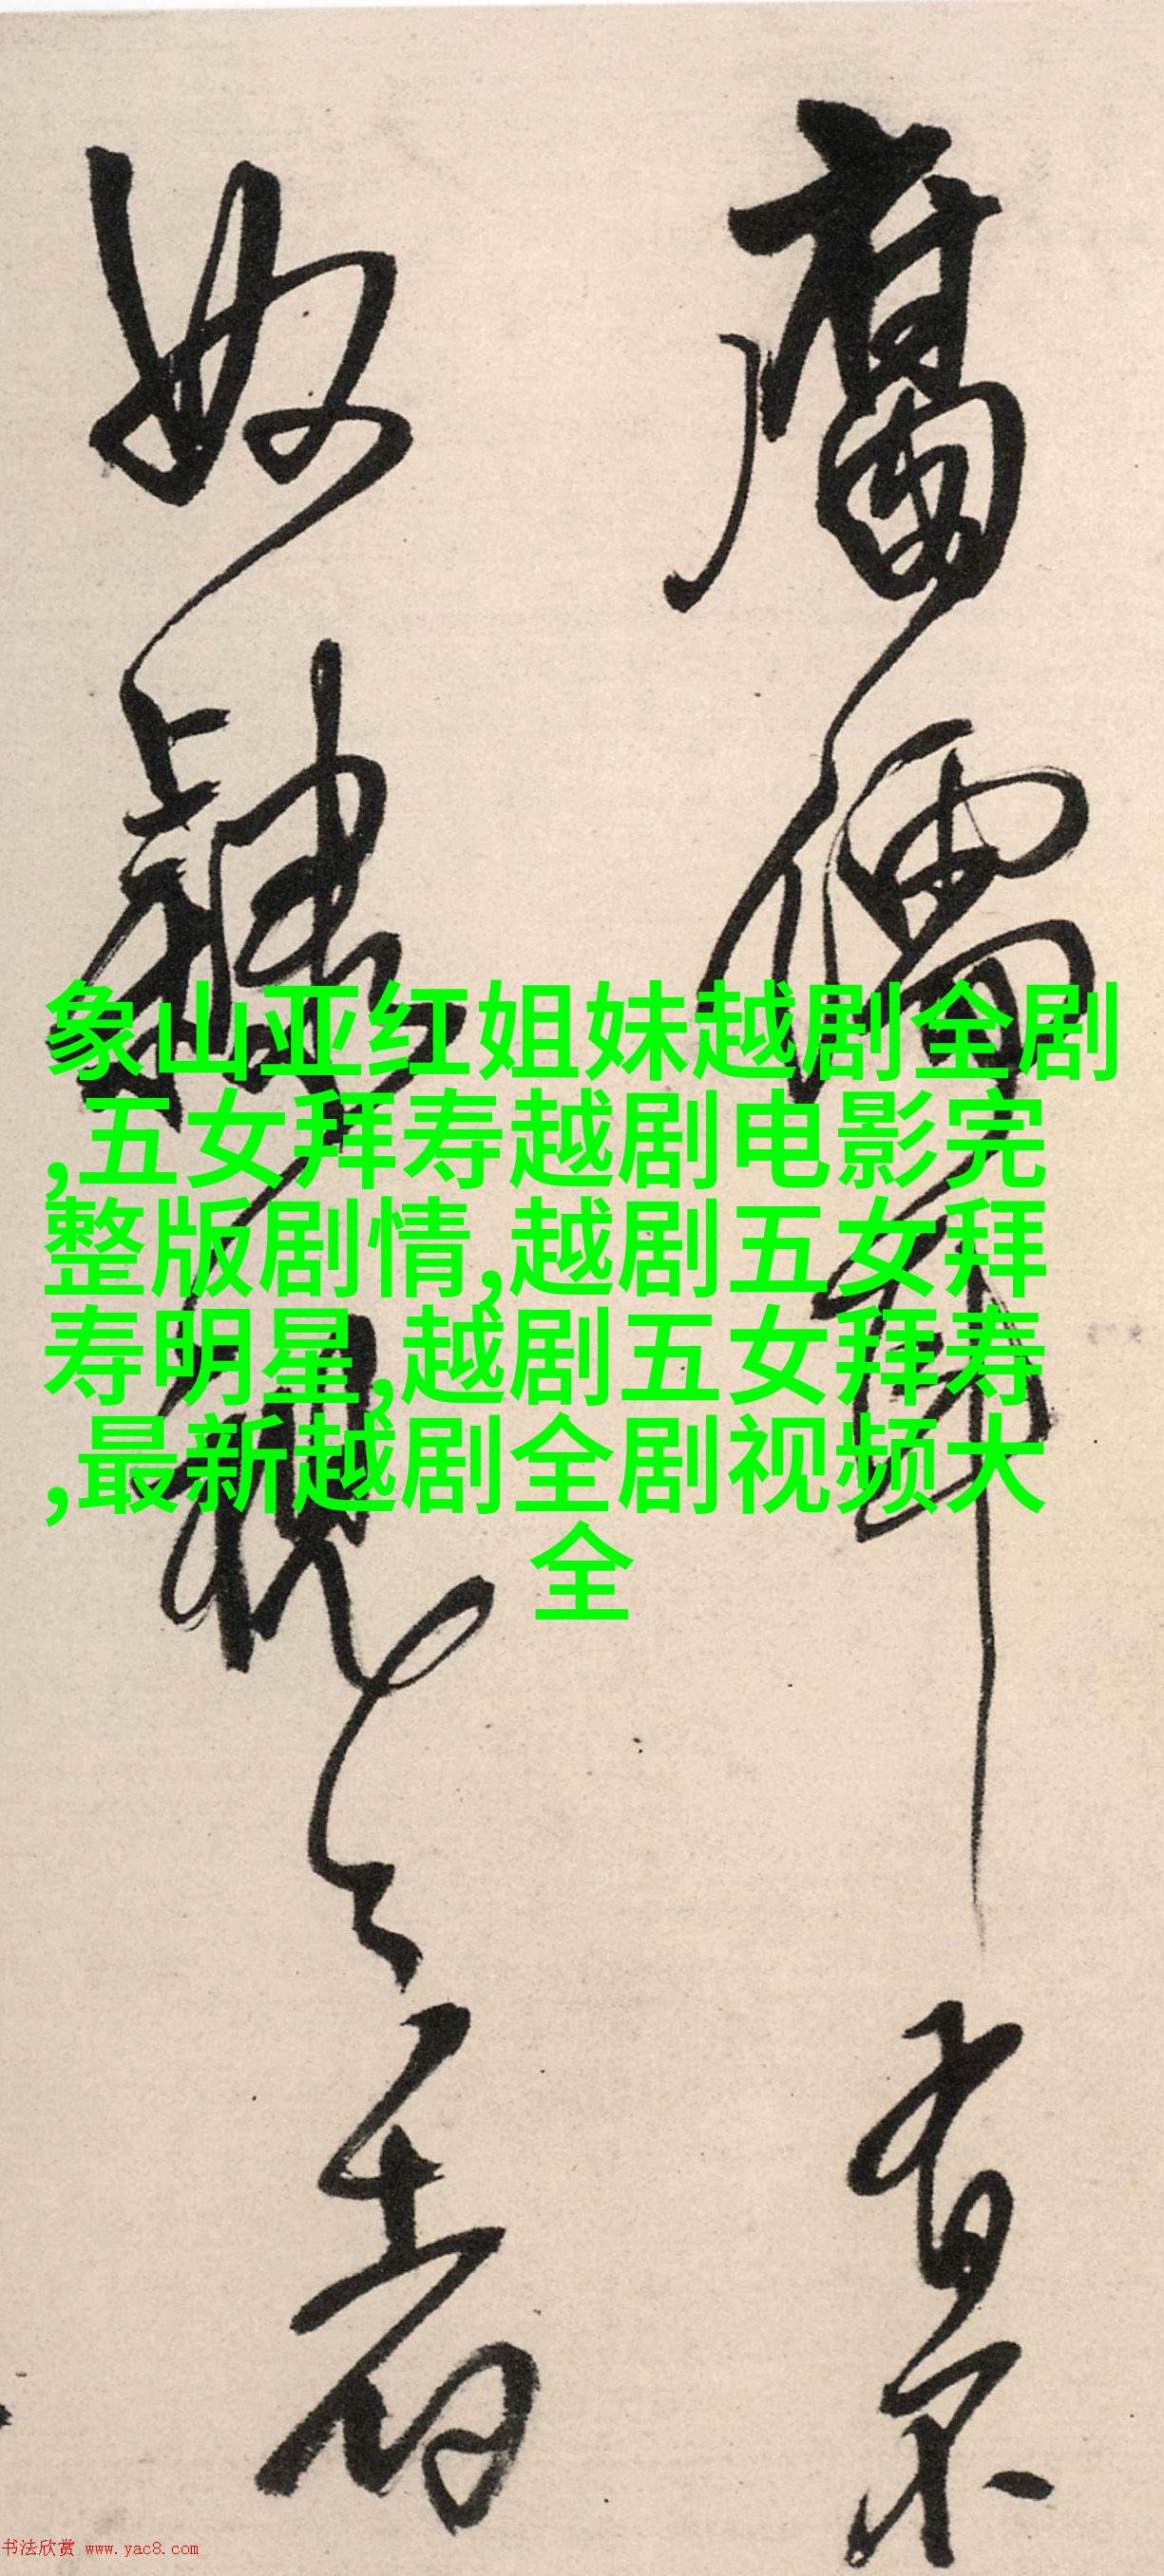 腐儒碎有不
如隸
者
象山亚红姐妹越剧全剧
,五女拜寿越剧电影完
整版剧情,越剧五女拜
寿明星,越剧五女拜寿
,最新越剧全剧视频大
全
书法欣赏 www.yac8.com